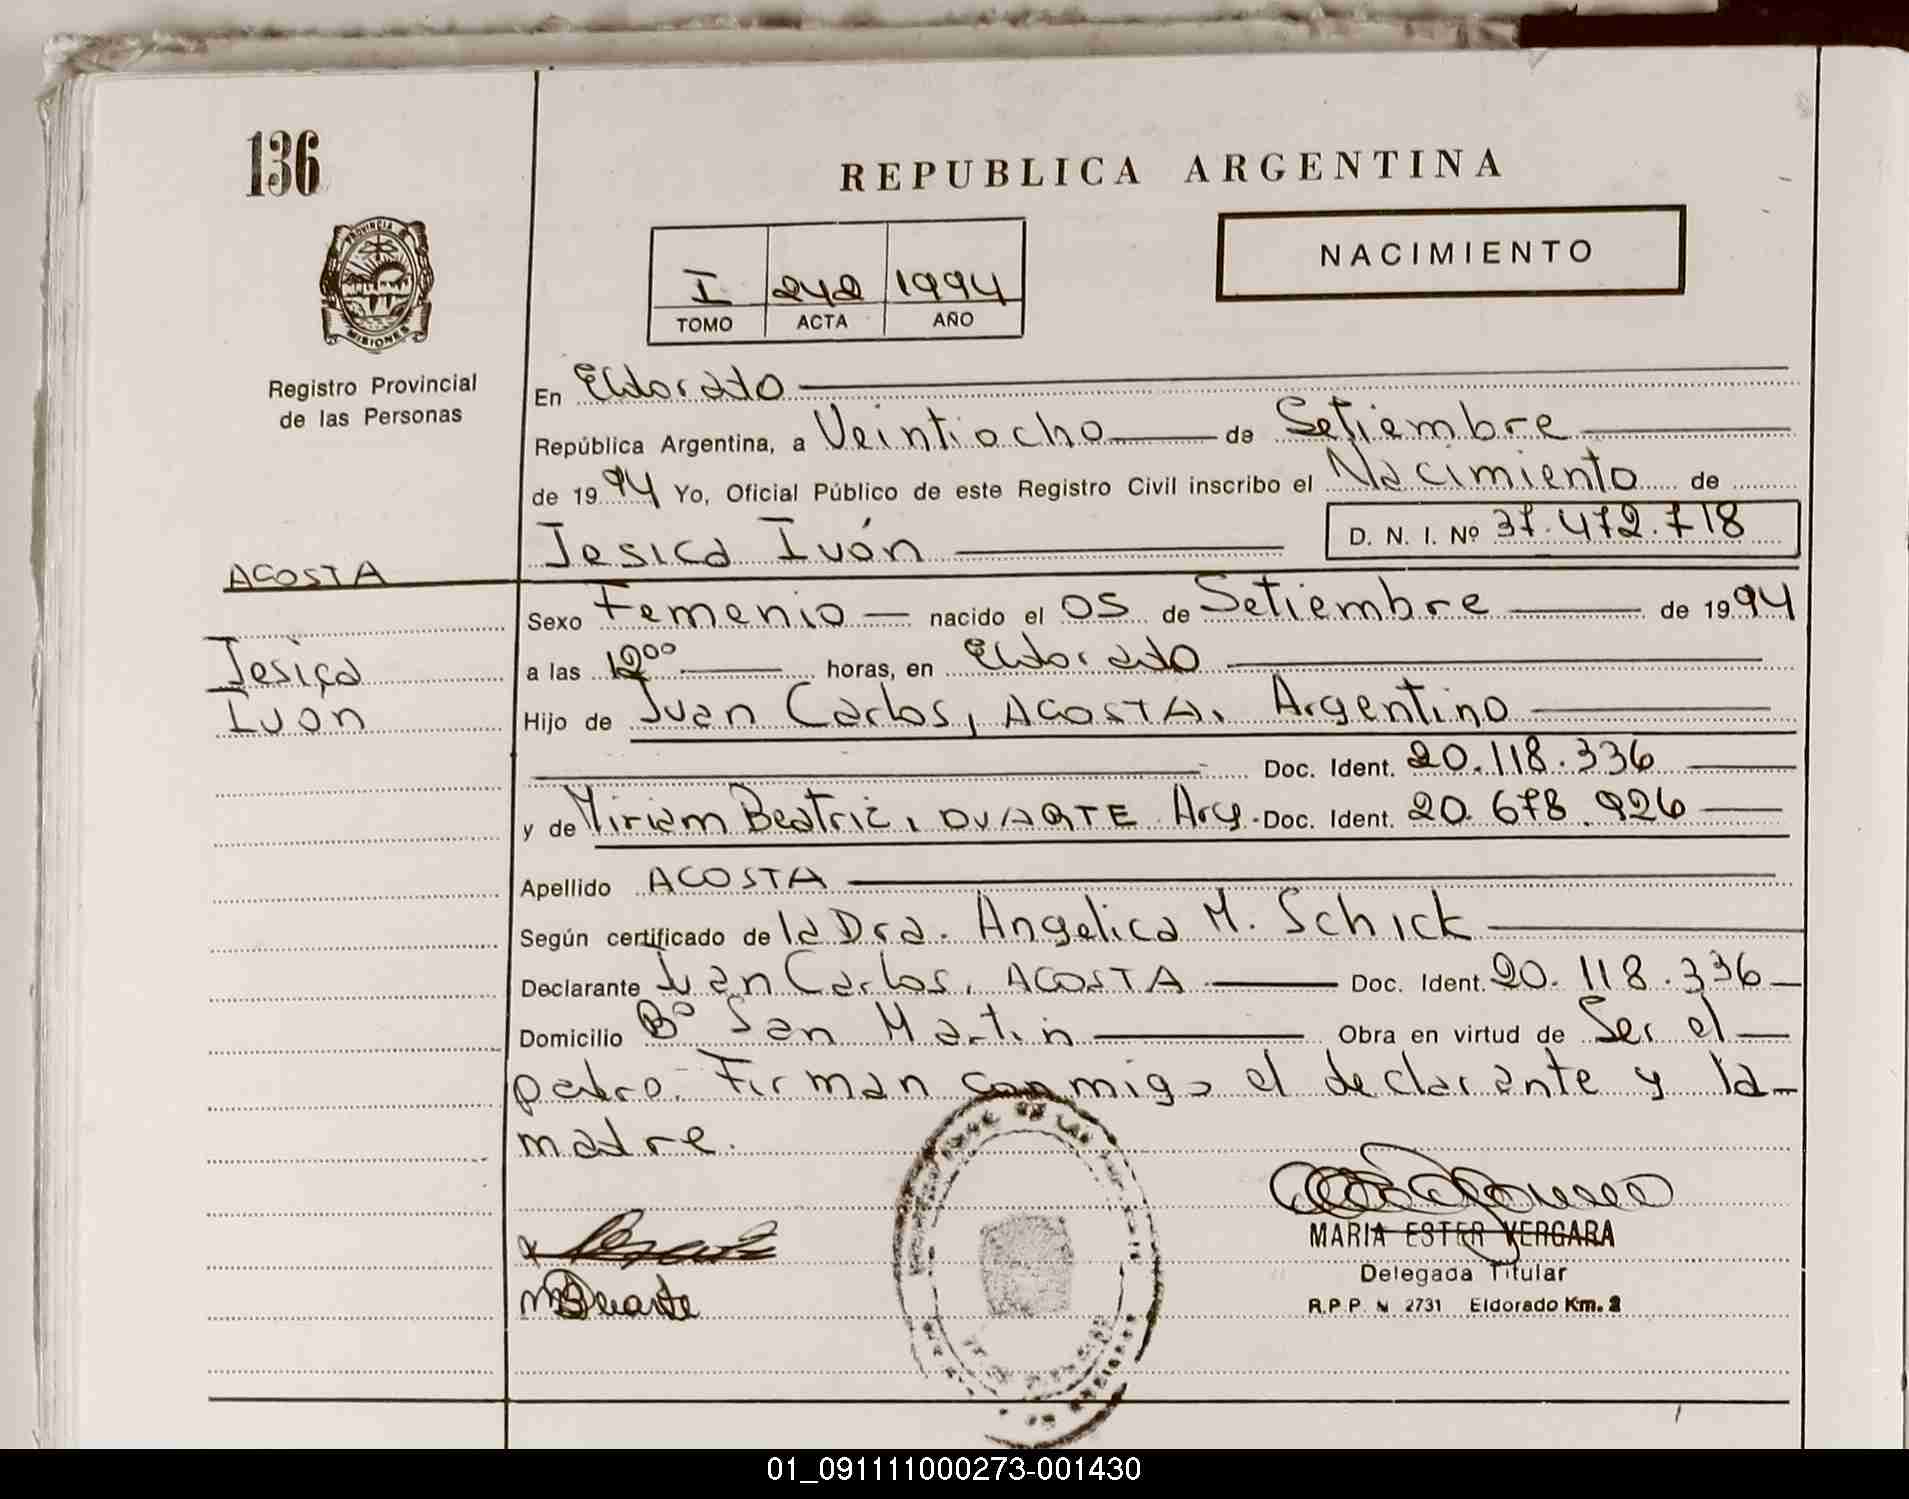 136
REPUBLICA ARGENTINA
PROVINCIA DE
MISIONES
Registro Provincial
de las Personas
I 242 1994
TOMO ACTA AÑO
NACIMIENTO
En Eldorado
República Argentina, a Veintiocho de Setiembre
de 1994 Yo, Oficial Público de este Registro Civil inscribo el Nacimiento de
Jesica Ivón D. N. I. Nº 37.472.718
ACOSTA
Jesica
Ivon
Sexo Femenio nacido el 05 de Setiembre de 1994
a las 12⁰⁰ horas, en Eldorado
Hijo de Juan Carlos, ACOSTA, Argentino
Doc. Ident. 20.118.336
y de Miriam Beatriz, DUARTE Arg. Doc. Ident. 20.678.926
Apellido ACOSTA
Según certificado de la Dra. Angelica M. Schick
Declarante Juan Carlos, ACOSTA Doc. Ident. 20.118.336
Domicilio Bº San Martin Obra en virtud de Ser el
padre. Firman conmigo el declarante y la
madre.
MBDuarte
MARIA ESTER VERGARA
Delegada Titular
R.P.P. N 2731 Eldorado Km. 2
01_091111000273-001430